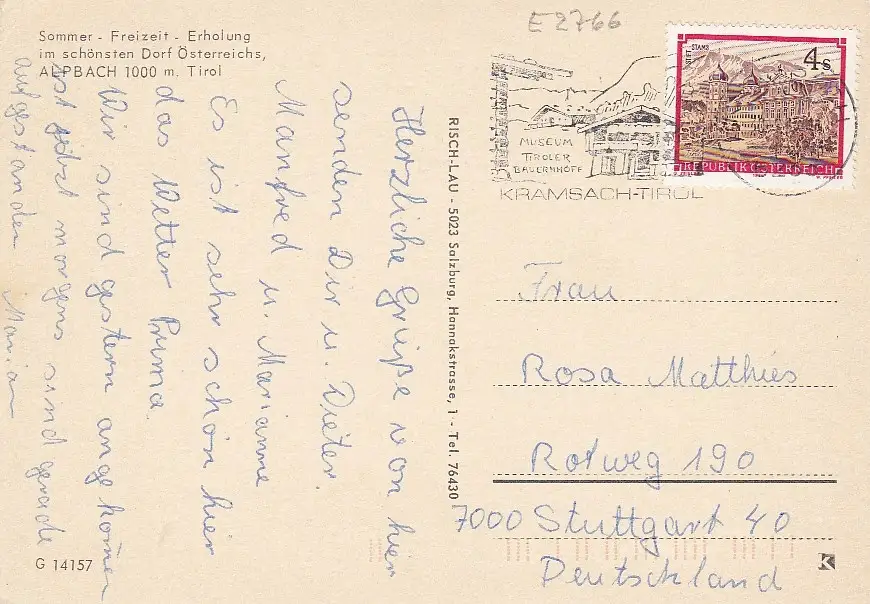 E 2766
Sommer - Freizeit - Erholung
im schönsten Dorf Österreichs,
ALPBACH 1000 m. Tirol
Herzliche Grüße von hier
senden Dir u. Dieter.
Manfred u. Marianne
Es ist sehr schön hier
das Wetter Prima.
Wir sind gestern angekom̄en
ist jetzt morgens sind gerade
aufgestanden. Marian
G 14157
RISCH-LAU - 5023 Salzburg, Hannakstrasse, 1 - Tel. 76430
MUSEUM
TIROLER
BAUERNHÖFE
KRAMSACH-TIROL
STIFT STAMS
4s
REPUBLIK ÖSTERREICH
Frau
Rosa Matthies
Rotweg 190
7000 Stuttgart 40
Deutschland
K